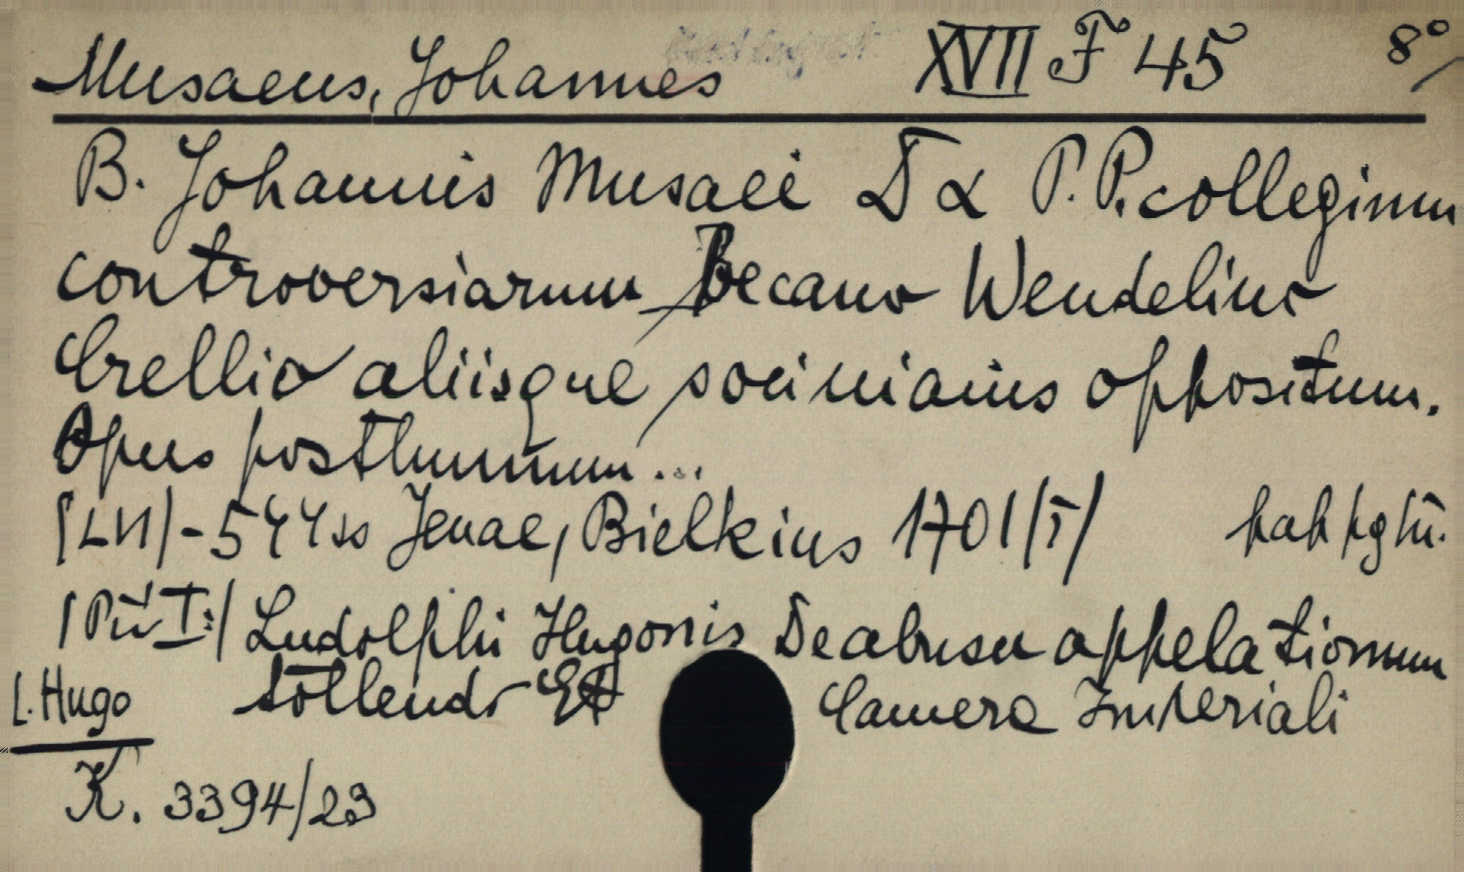 Musaeus, Johannes XVII F 45 8°
B. Johannis Musaei D & P. P. collegium
controversiarum Becano Wendelino
Crellio aliisque socinianis oppositum.
Opus posthumum ...
[LII]-544ss Jenae, Bielkius 1701 /I/ pap pglü.
/Přív I:/ Ludolphi Hugonis De abusu appelationum
L. Hugo tollendo Camera Imperiali
K. 3394/23